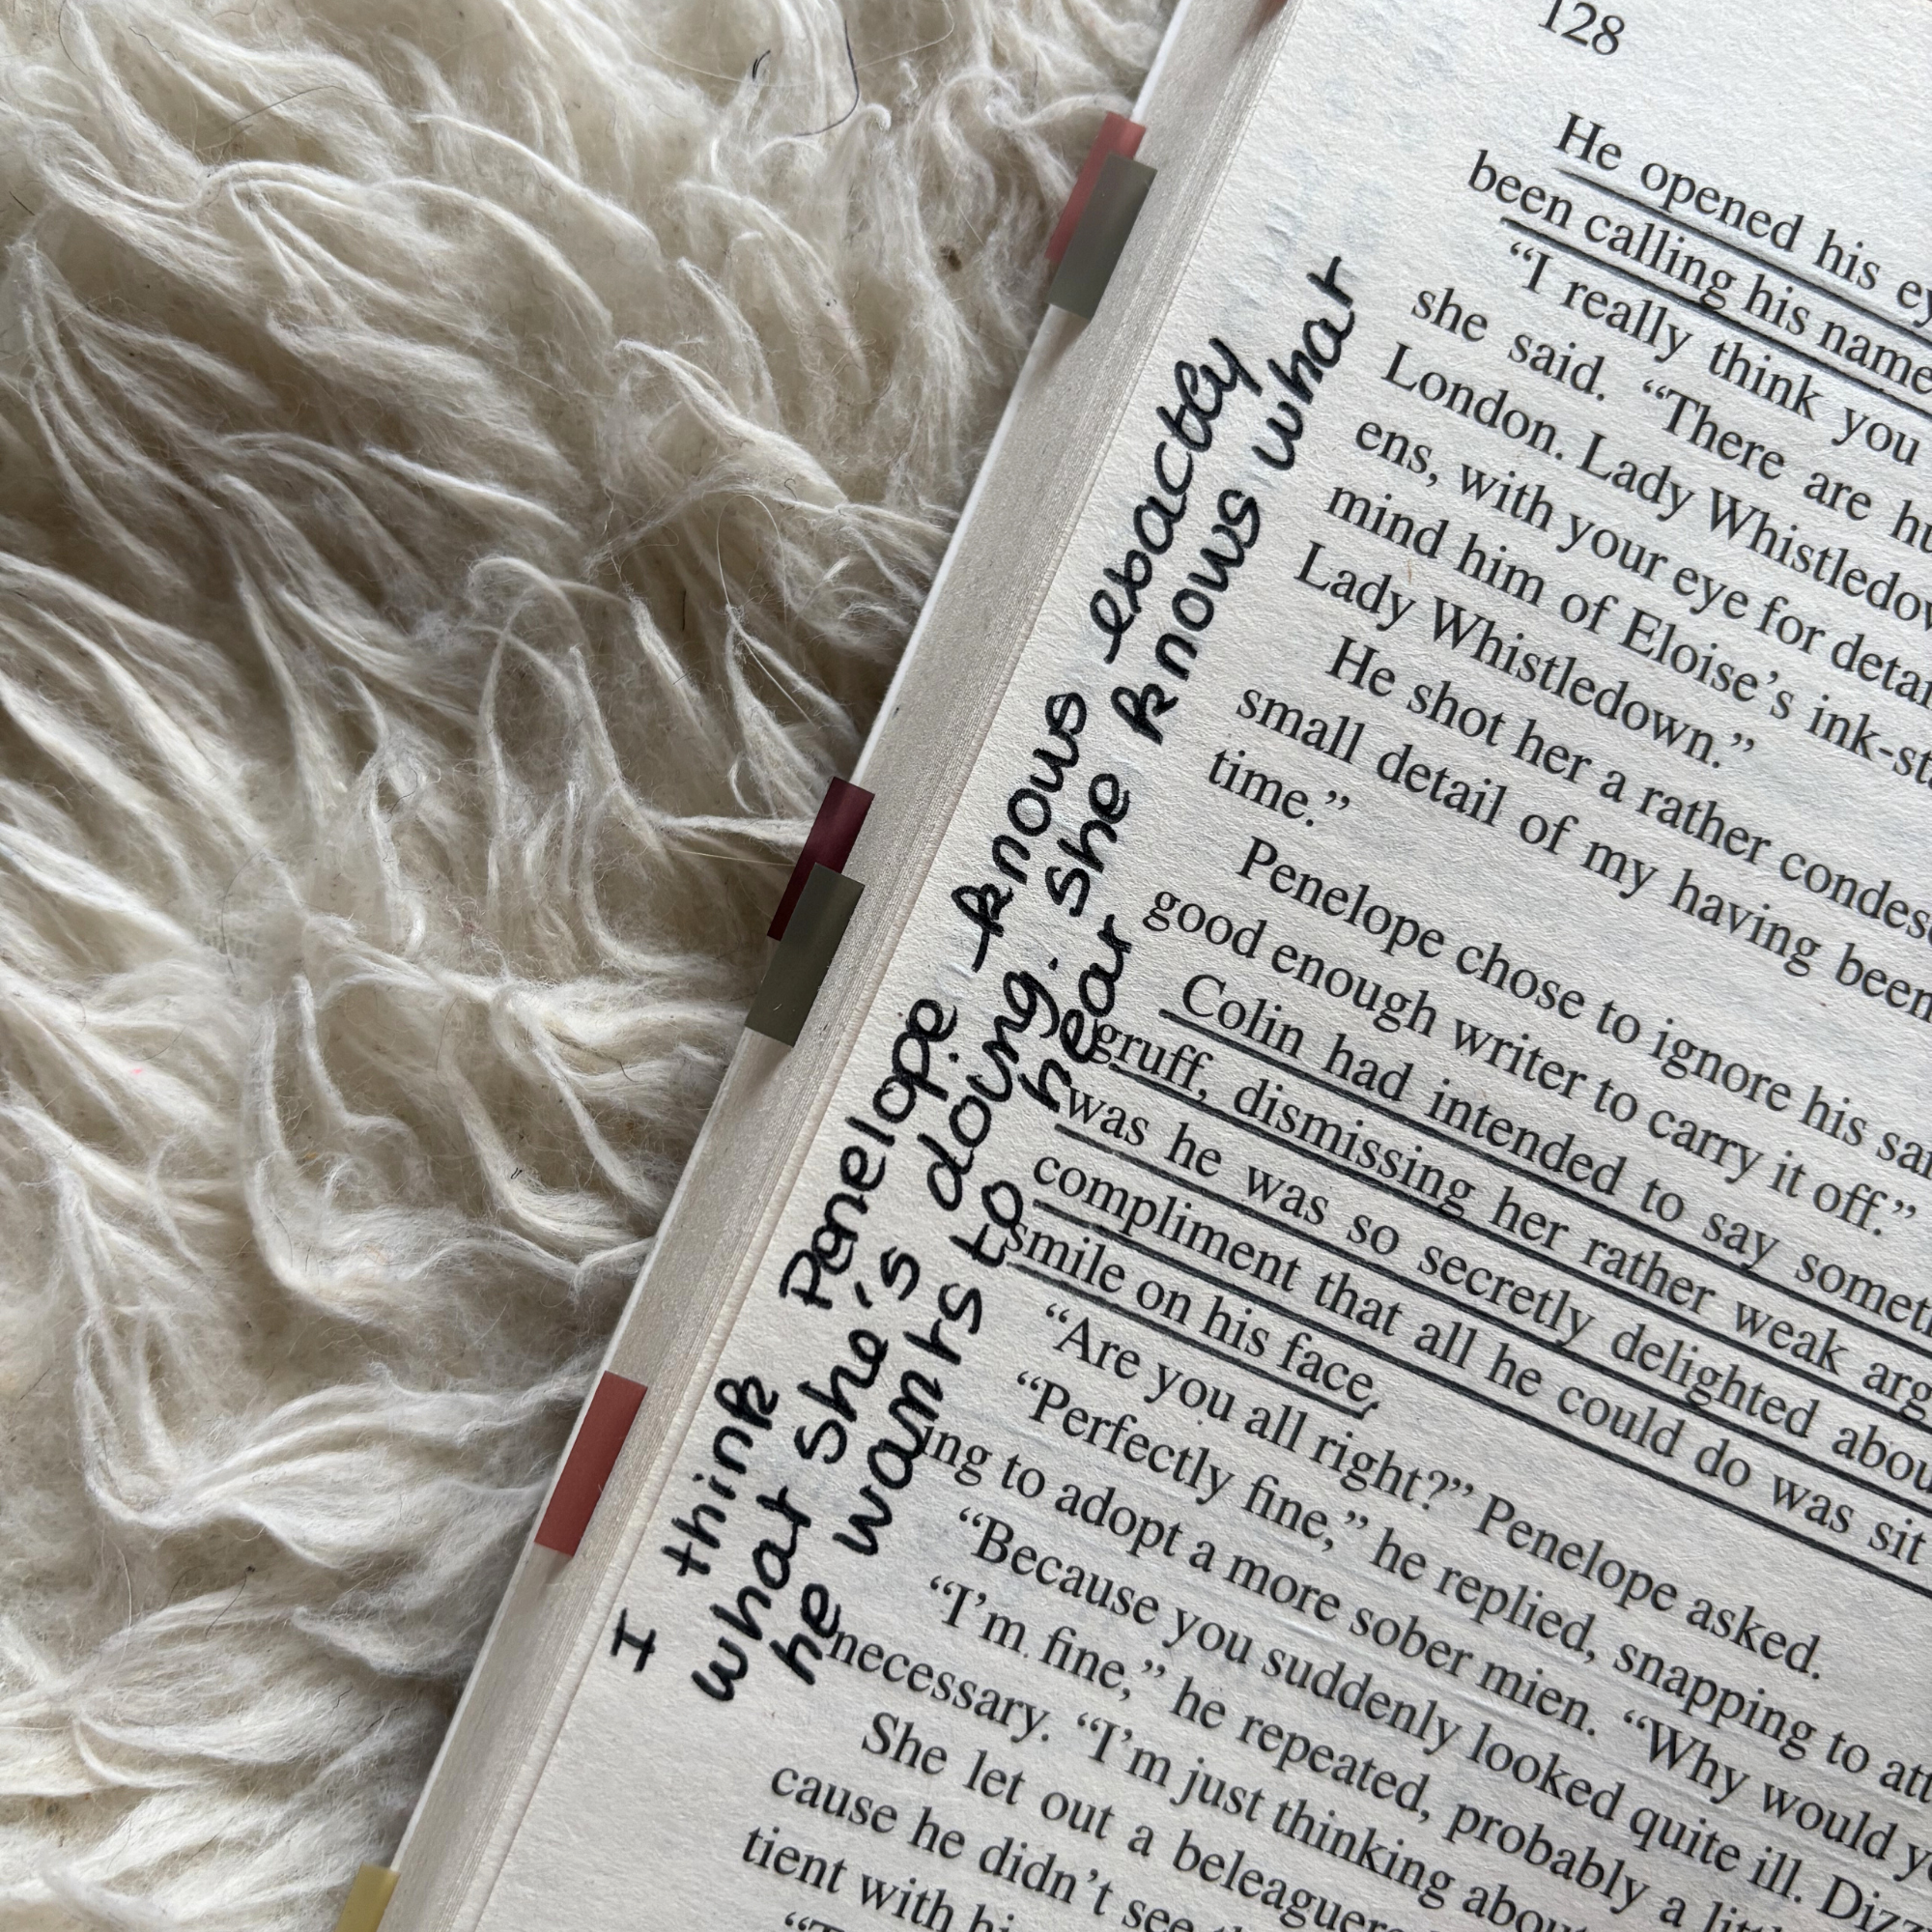 128
He opened his
been calling his name
"I really think you
she said. "There are
London. Lady
ens, with your eye for
mind him of Eloise's
Lady Whistledown."
He shot her a rather
small detail of my having been
time."
Penelope chose to ignore his
good enough writer to carry it off."
Colin had intended to say
gruff, dismissing her rather weak
was he was so secretly delighted
compliment that all he could do was sit
smile on his face,
"Are you all right?" Penelope asked.
"Perfectly fine," he replied, snapping to
ing to adopt a more sober mien. "Why would
"Because you suddenly looked quite ill.
"I'm fine," he repeated, probably a
necessary. "I'm just thinking
She let out a
cause he didn't see
tient with
I think Penelope knows exactly
what she's doing. She knows what
he wants to hear